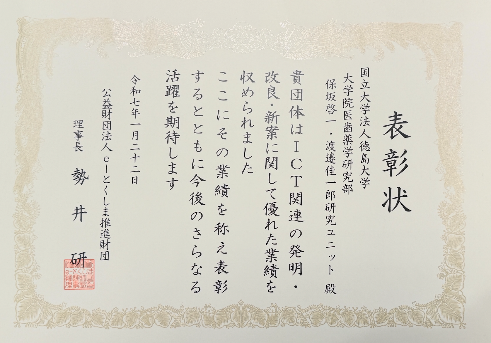 表彰状
国立大学法人徳島大学
大学院医歯薬学研究部
保坂啓一・渡邉佳一郎研究ユニット 殿
貴団体はICT関連の発明・
改良・新案に関して優れた業績を
収められました
ここにその業績を称え表彰
するとともに今後のさらなる
活躍を期待します
令和七年一月二十二日
公益財団法人e-とくしま推進財団
理事長 勢井 研